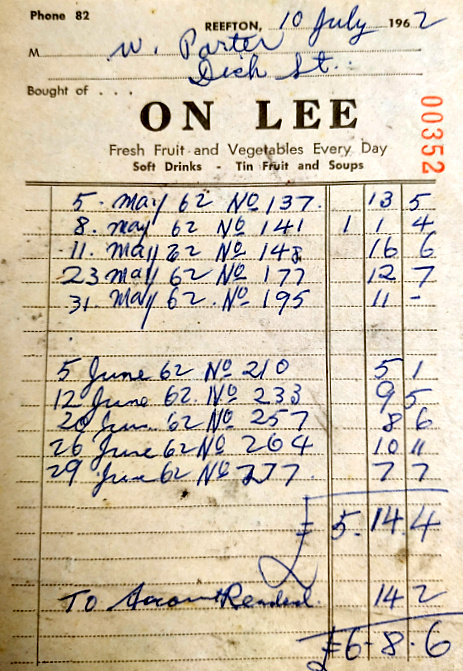 Phone 82
REEFTON, 10 July 1962
M W. Parter
Dich St.
Bought of . . .
00352
ON LEE
Fresh Fruit and Vegetables Every Day
Soft Drinks - Tin Fruit and Soups
5. May 62 No 137. 13 5
8. May 62 No 141 1 1 4
11. May 62 No 148 16 6
23 May 62 No 177 12 7
31 May 62. No 195 11 -
5 June 62 No 210 5 1
12 June 62. No 233 9 5
20 June 62 No 257 8 6
26 June 62 No 264 10 11
29 June 62 No 277 7 7
£ 5.14.4
To Account Rended 14 2
£6-8.6